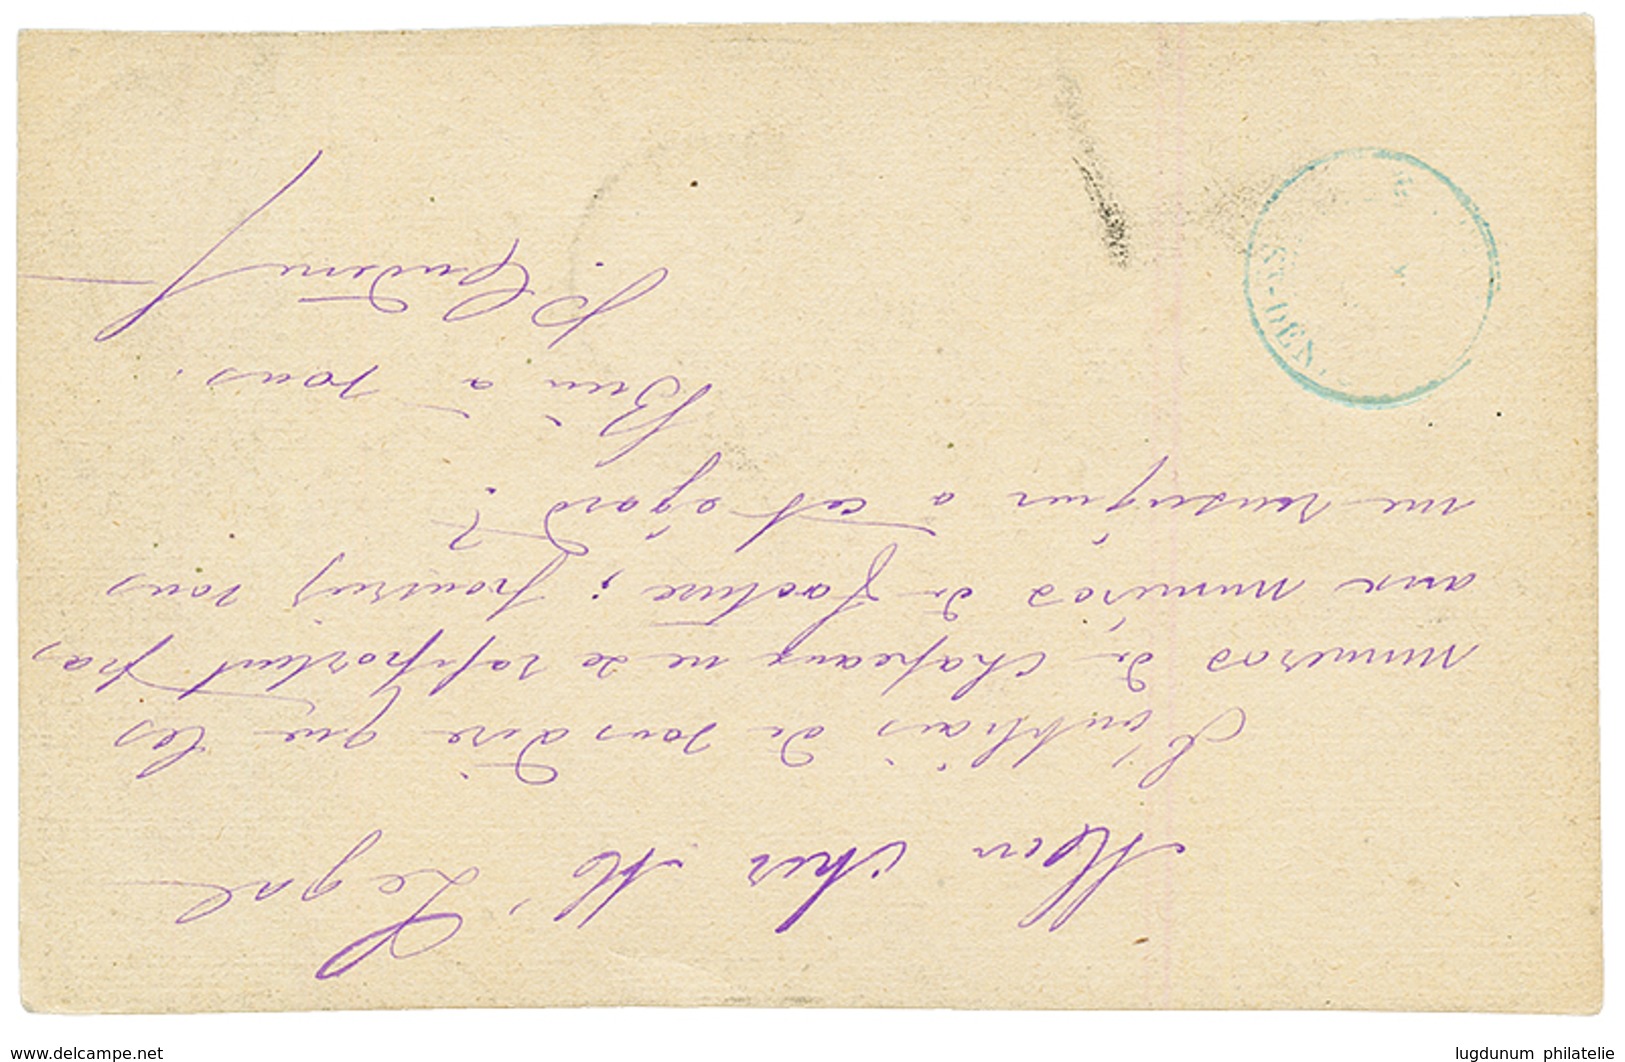 Mon cher M. Legal
J'oubliais de vous dire que les
numéros de chapeaux ne se rapportent pas,
aux numéros de facture ; pourriez vous
me renseigner à cet égard ?
Bien à vous.
ST-DEN
www.delcampe.net
lugdunum philatelie